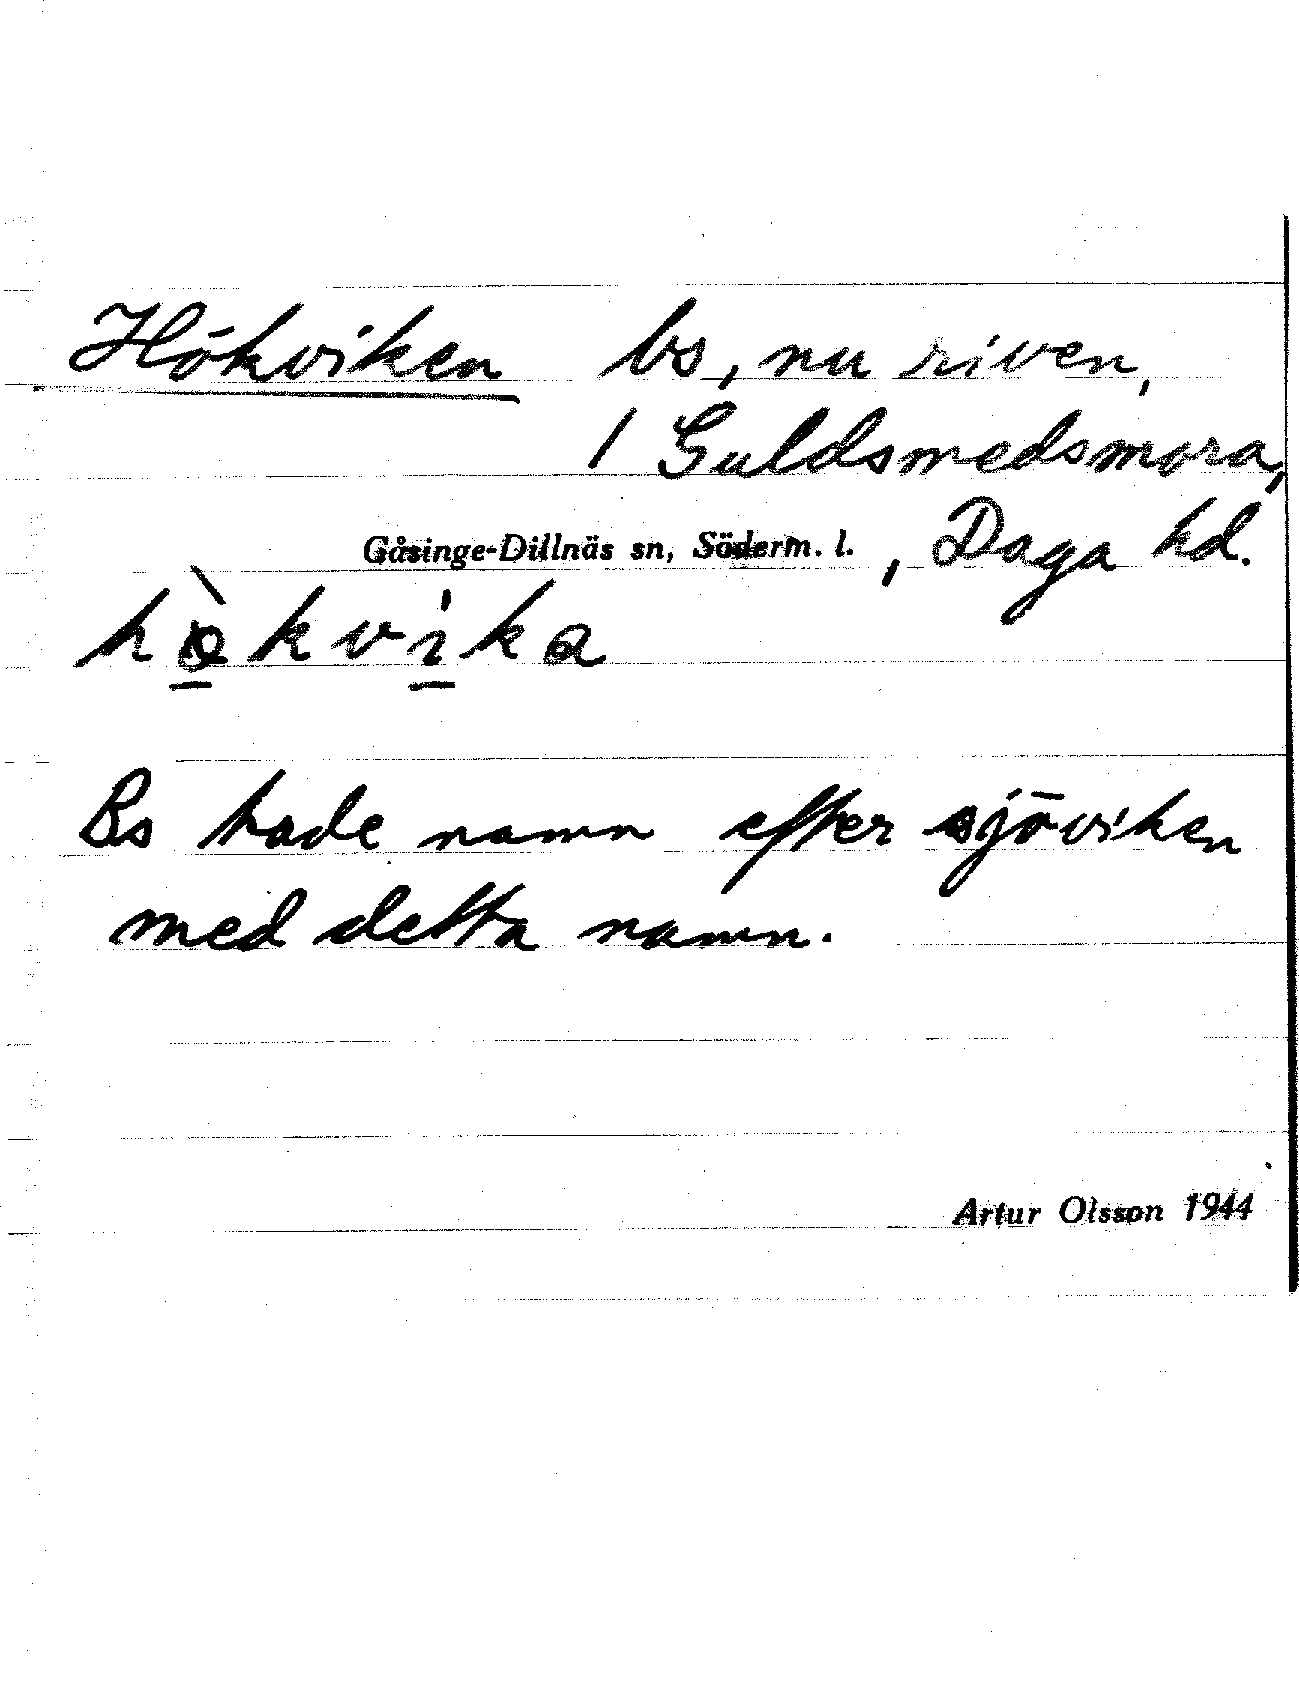 Hökviken bs, nu riven,
/ Guldsmedsmora,
Gåsinge-Dillnäs sn, Söderm. l. , Daga hd.
hø̀kvi̍ka
Bs hade namn efter sjöviken
med detta namn.
Artur Olsson 1944